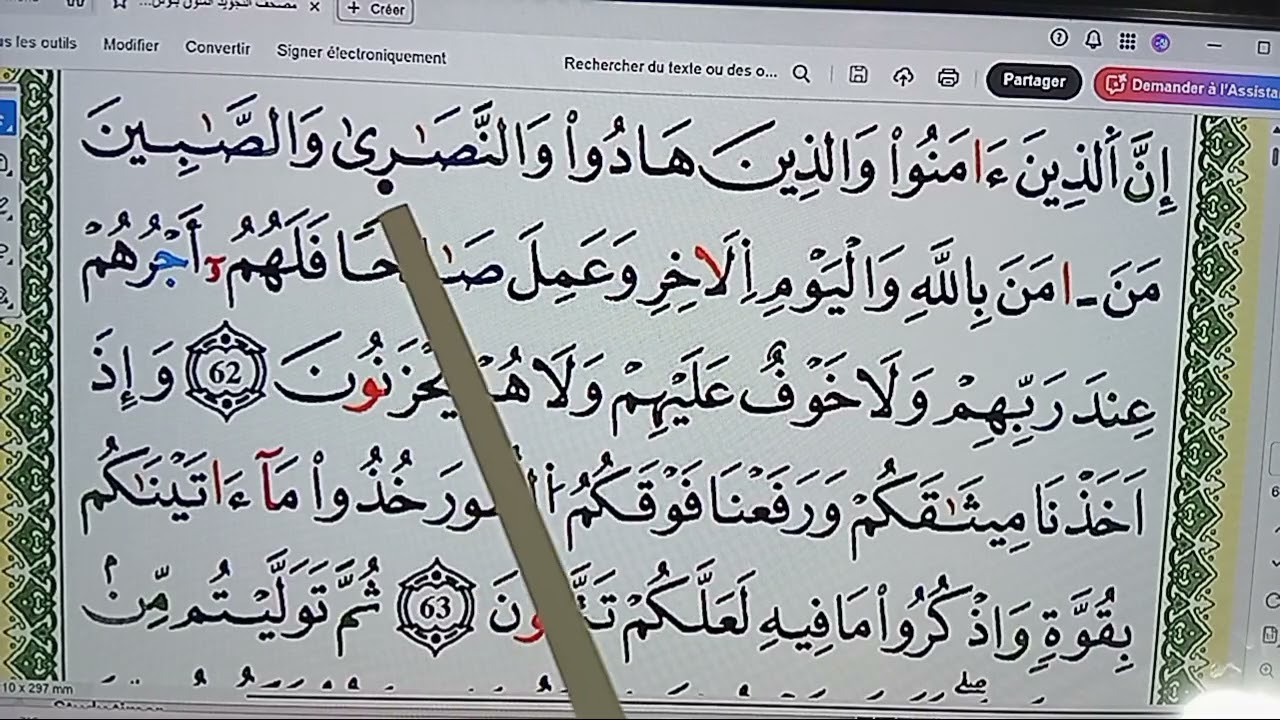 مصحف التجويد
+ Créer
les outils Modifier Convertir Signer électroniquement Rechercher du texte ou des o... Partager Demander à l'Assista
إِنَّ اَ۬لذِينَ ءَامَنُواْ وَالذِينَ هَادُواْ وَالنَّصَٰر۪ىٰ وَالصَّٰبِينَ
مَنَ ـ امَنَ بِاللَّهِ وَالْيَوْمِ اِ۬لَاخِرِ وَعَمِلَ صَٰلِحاً فَلَهُمُۥٓ أَجْرُهُمْ
عِندَ رَبِّهِمْ وَلَا خَوْفٌ عَلَيْهِمْ وَلَا هُمْ يَحْزَنُونَ 62 وَإِذَ
اَخَذْنَا مِيثَٰقَكُمْ وَرَفَعْنَا فَوْقَكُمُ اُ۬لطُّورَ خُذُواْ مَآ ءَاتَيْنَٰكُم
بِقُوَّةٍ وَاذْكُرُواْ مَا فِيهِ لَعَلَّكُمْ تَتَّقُونَ 63 ثُمَّ تَوَلَّيْتُم مِّنۢ
10 x 297 mm